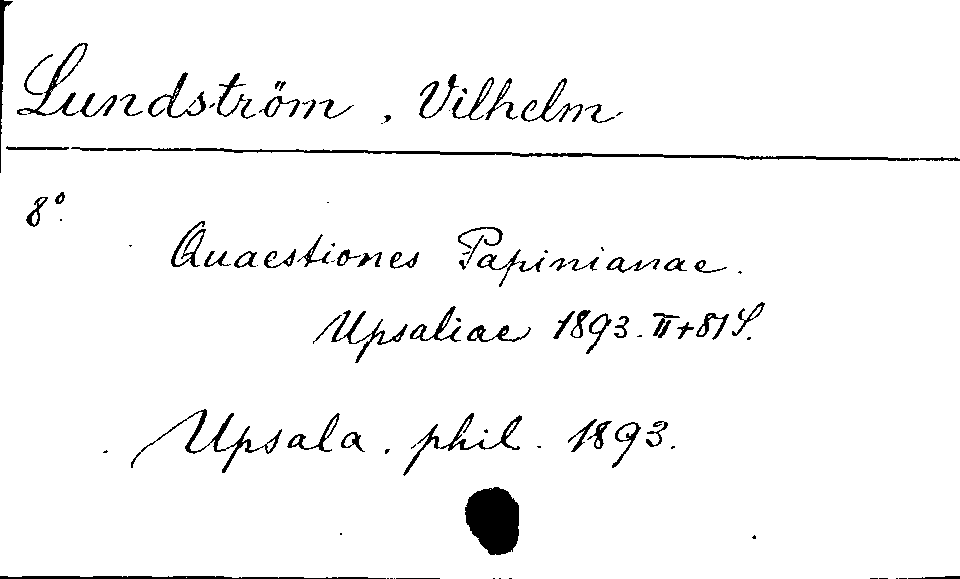 Lundström, Vilhelm
8°.
Quaestiones Papinianae.
Upsaliae 1893. II+81 S.
Upsala. phil. 1893.